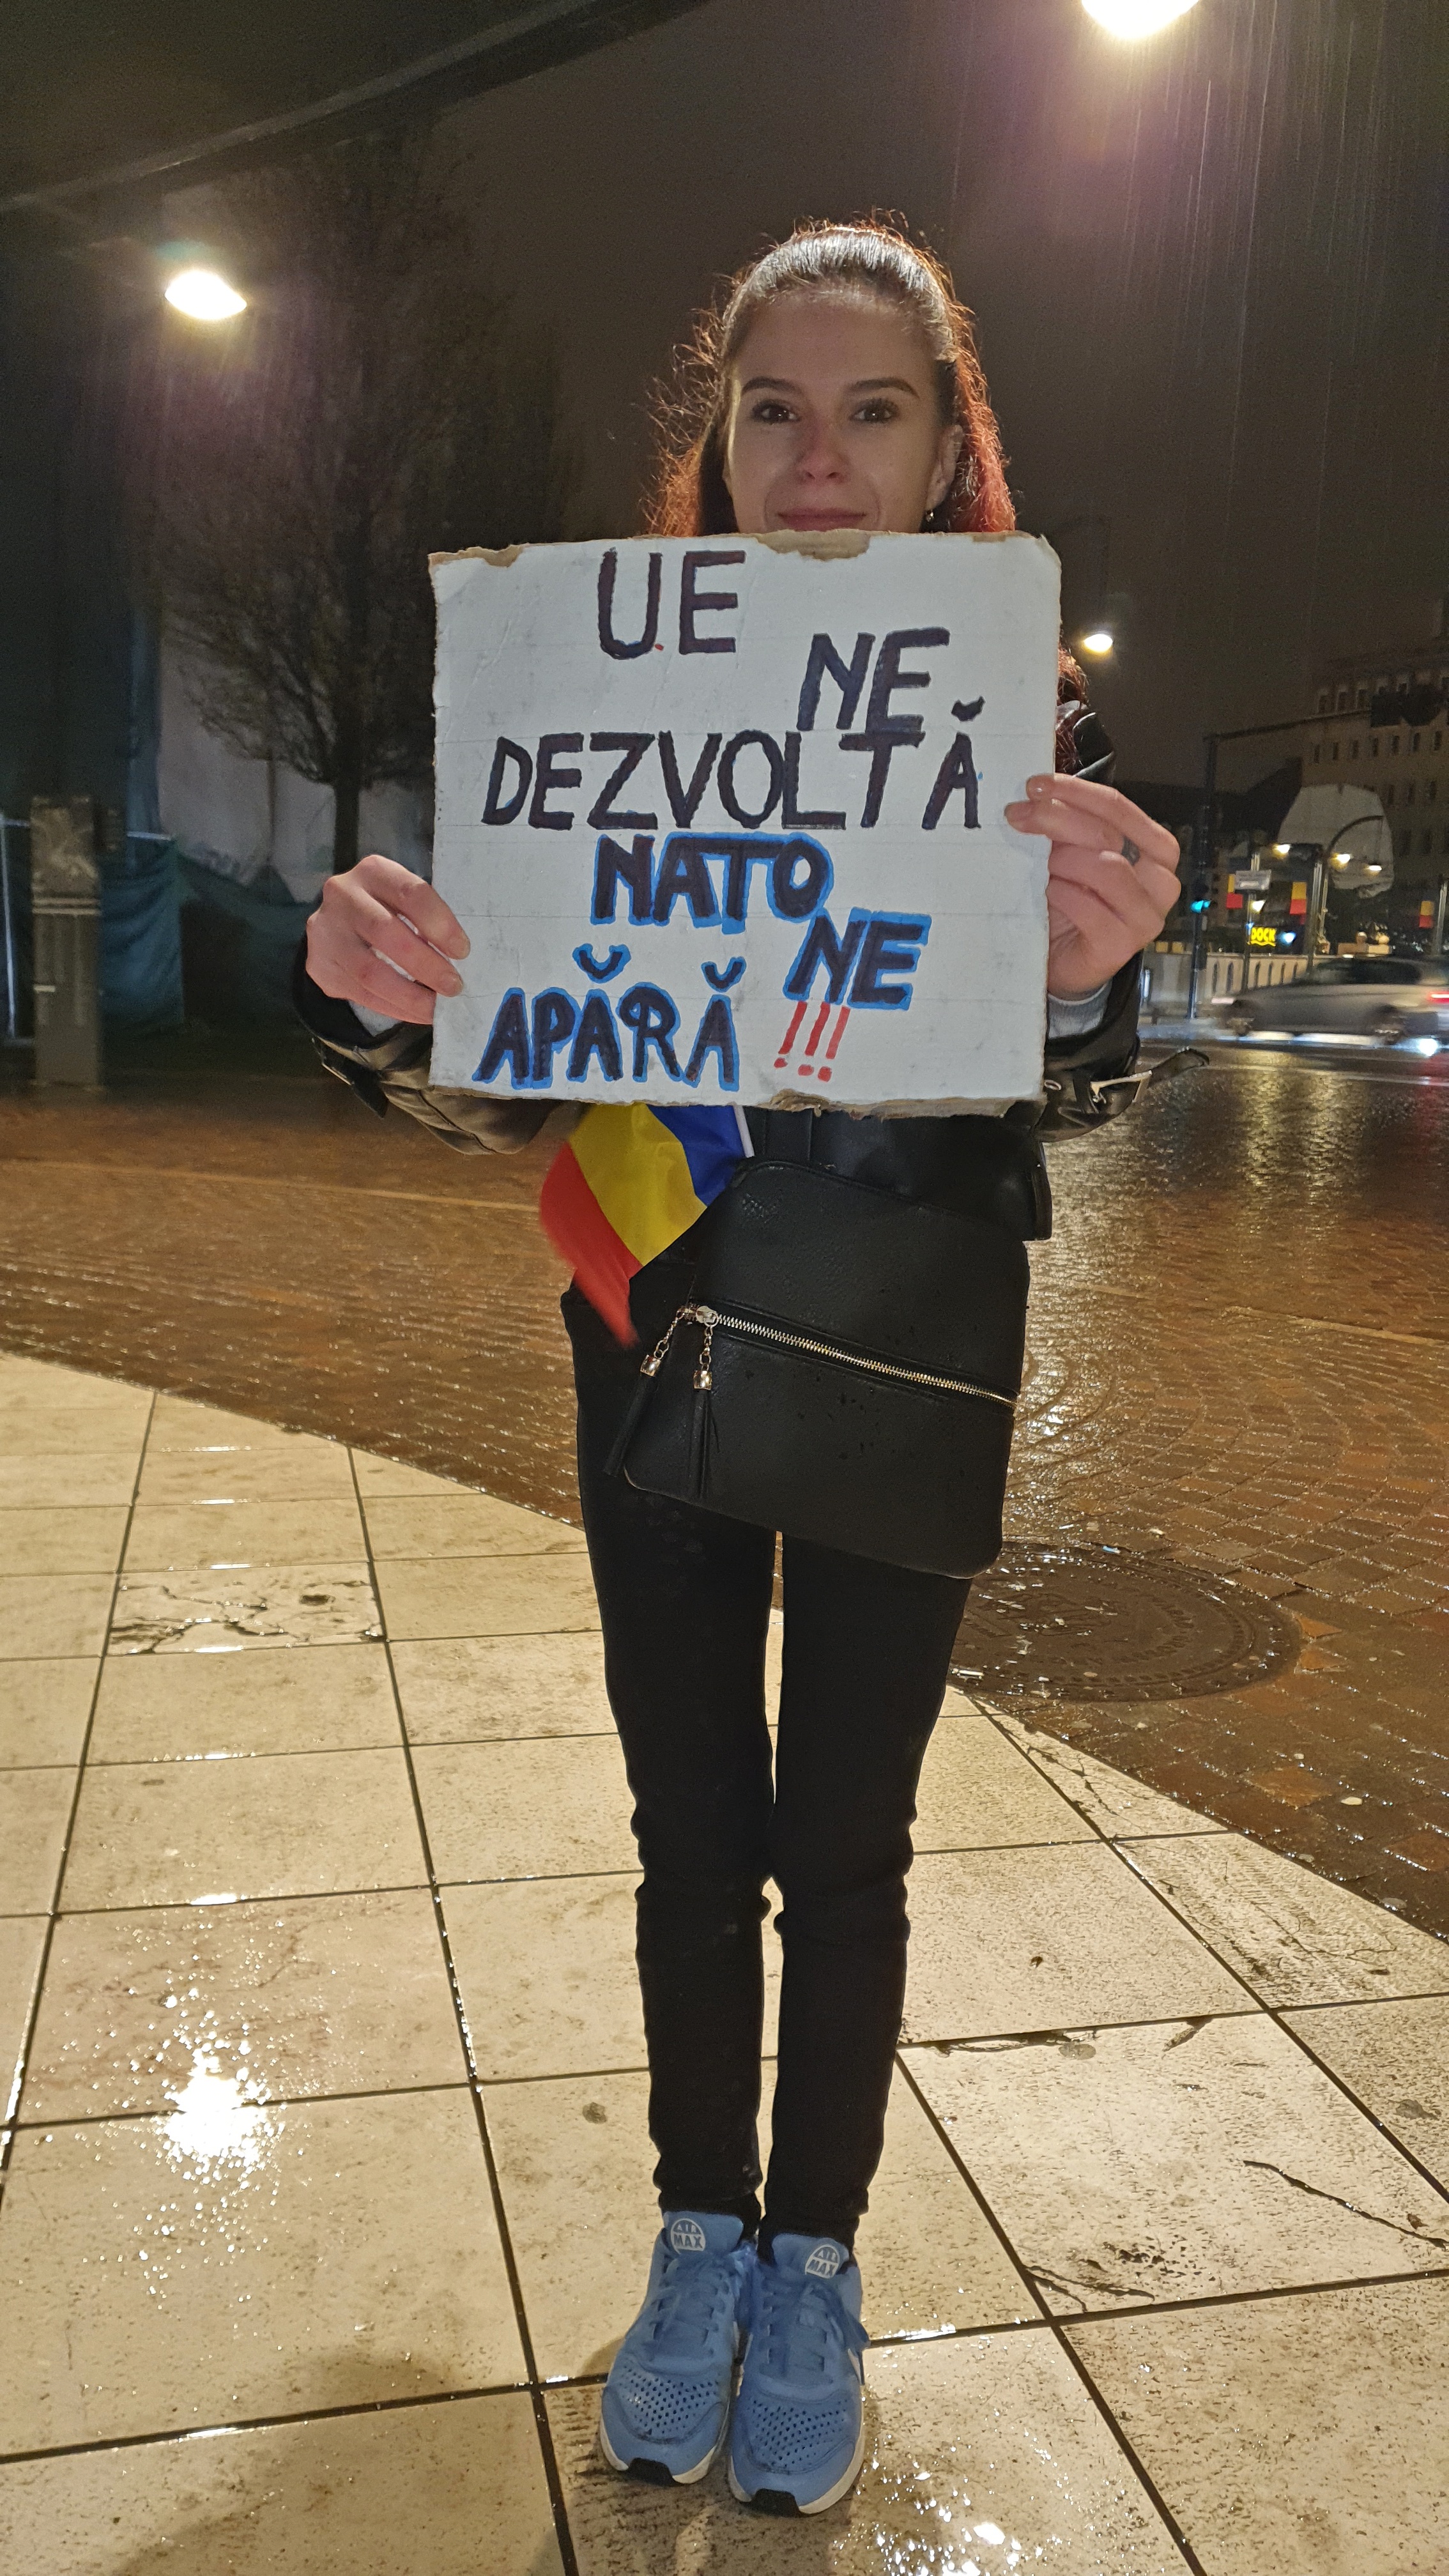 UE
NE
DEZVOLTĂ
NATO
NE
APĂRĂ !!!
AIR
MAX
AIR
MAX